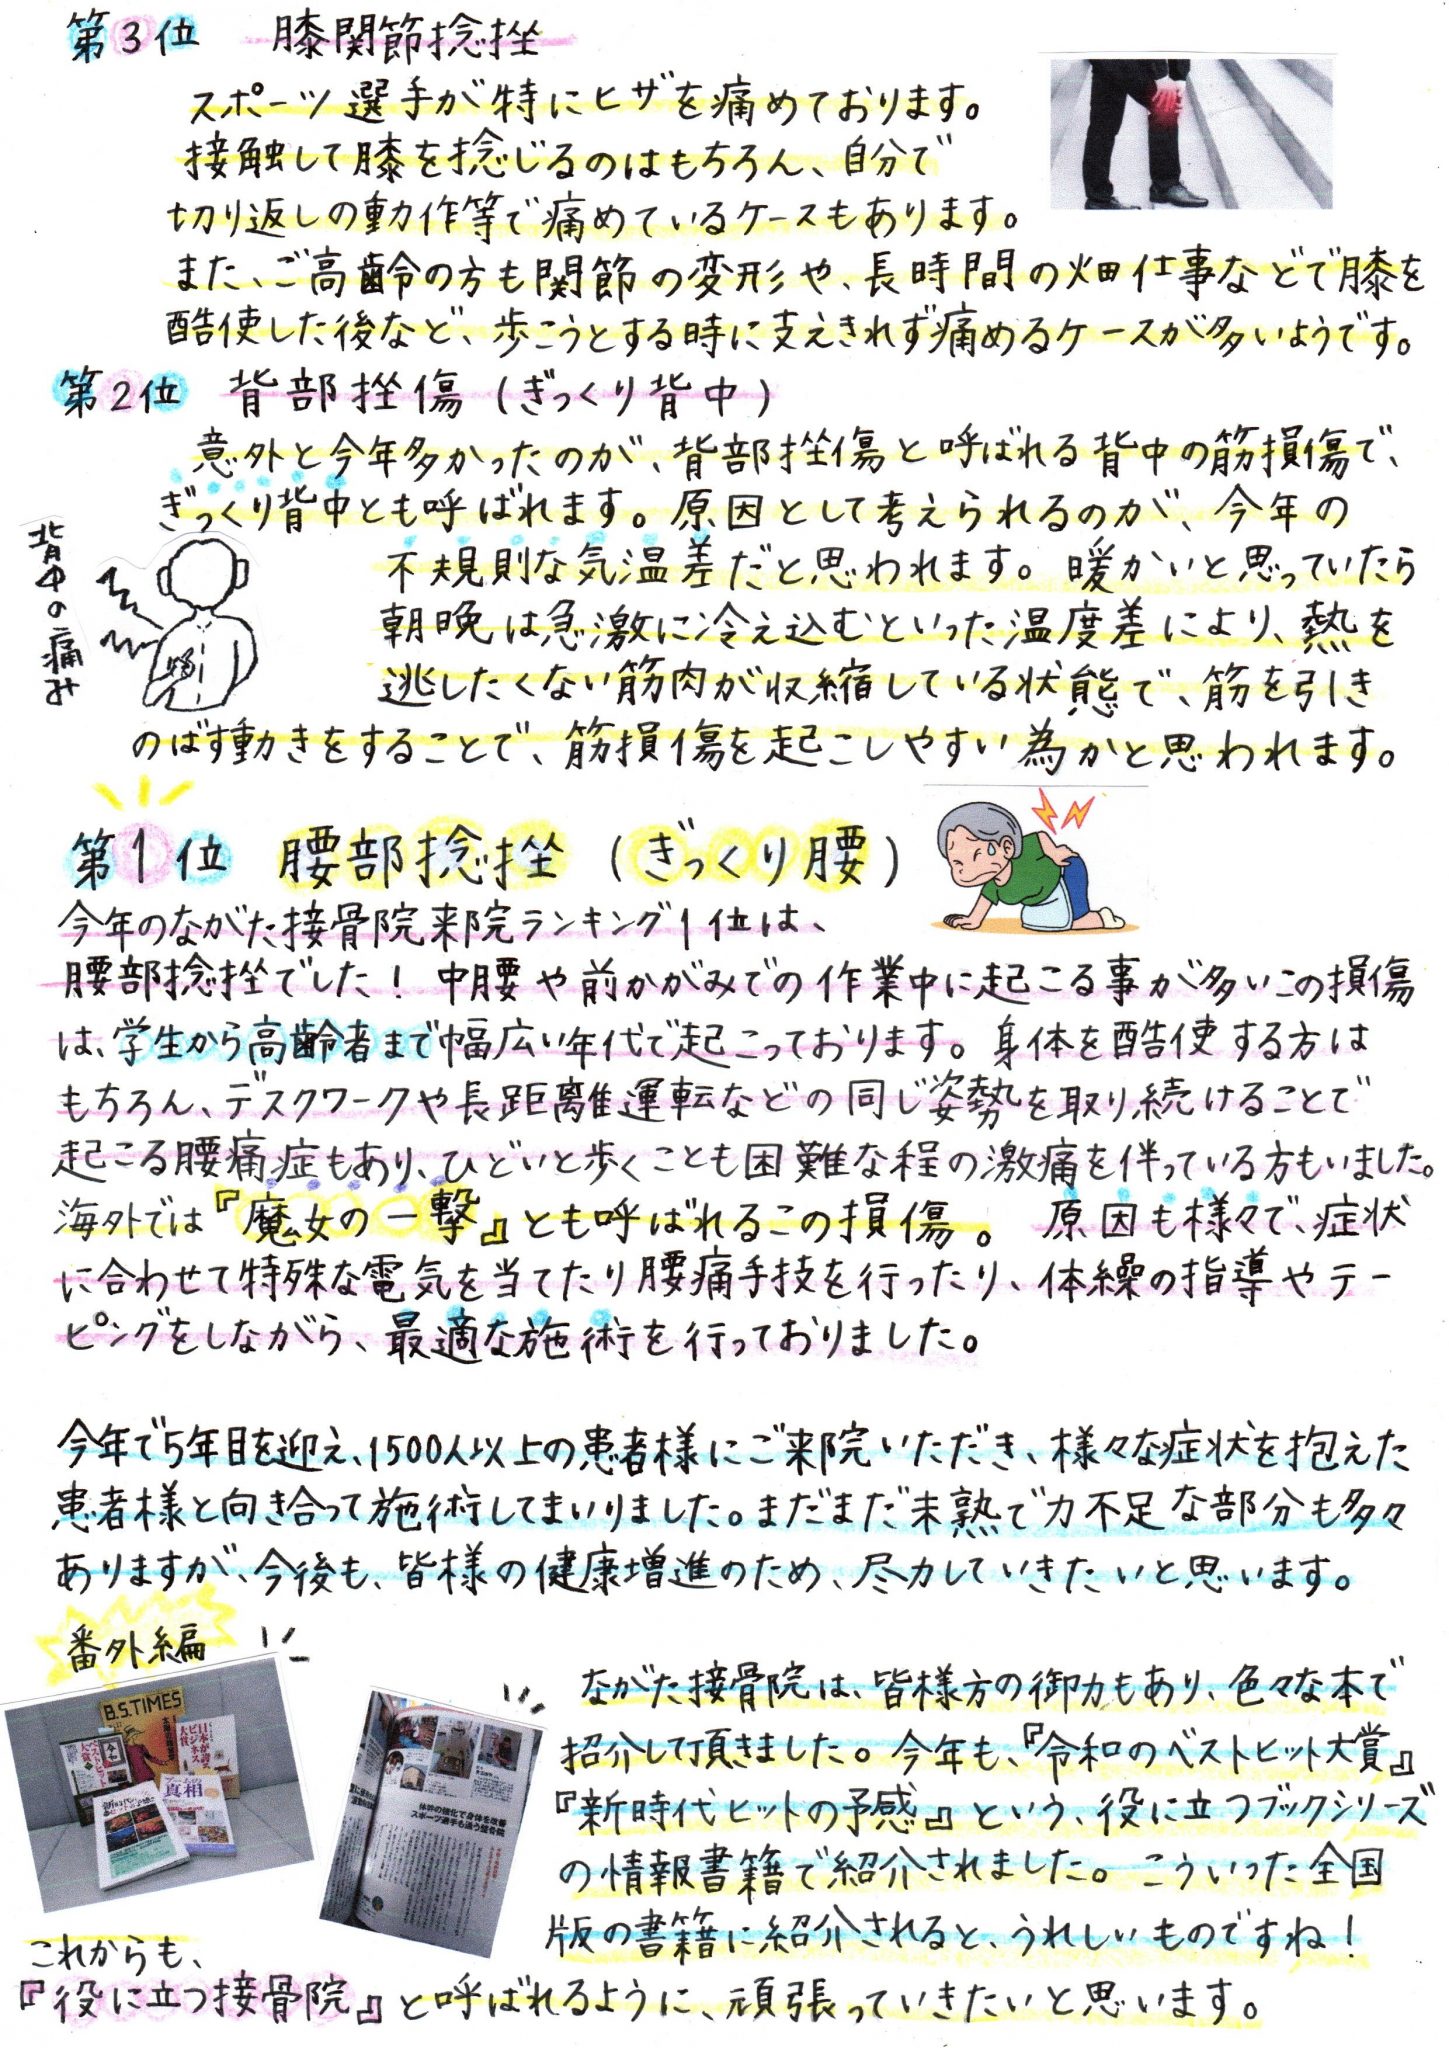 第3位 膝関節捻挫
スポーツ選手が特にヒザを痛めております。
接触して膝を捻じるのはもちろん、自分で
切り返しの動作等で痛めているケースもあります。
また、ご高齢の方も関節の変形や、長時間の畑仕事などで膝を
酷使した後など、歩こうとする時に支えきれず痛めるケースが多いようです。
第2位 背部挫傷(ぎっくり背中)
意外と今年多かったのが、背部挫傷と呼ばれる背中の筋損傷で、
ぎっくり背中とも呼ばれます。原因として考えられるのが、今年の
不規則な気温差だと思われます。暖かいと思っていたら
朝晩は急激に冷え込むといった温度差により、熱を
逃したくない筋肉が収縮している状態で、筋を引き
のばす動きをすることで、筋損傷を起こしやすい為かと思われます。
背中の痛み
第1位 腰部捻挫(ぎっくり腰)
今年のながた接骨院来院ランキング1位は、
腰部捻挫でした!中腰や前かがみでの作業中に起こる事が多いこの損傷
は、学生から高齢者まで幅広い年代で起こっております。身体を酷使する方は
もちろん、デスクワークや長距離運転などの同じ姿勢を取り続けることで
起こる腰痛症もあり、ひどいと歩くことも困難な程の激痛を伴っている方もいました。
海外では『魔女の一撃』とも呼ばれるこの損傷。原因も様々で、症状
に合わせて特殊な電気を当てたり腰痛手技を行ったり、体操の指導やテー
ピングをしながら、最適な施術を行っておりました。
今年で5年目を迎え、1500人以上の患者様にご来院いただき、様々な症状を抱えた
患者様と向き合って施術してまいりました。まだまだ未熟で力不足な部分も多々
ありますが、今後も、皆様の健康増進のため、尽力していきたいと思います。
番外編
B.S.TIMES
真相
体幹の強化で身体を改善
スポーツ選手も通う整骨院
ながた接骨院は、皆様方の御力もあり、色々な本で
紹介して頂きました。今年も、『令和のベストヒット大賞』
『新時代ヒットの予感』という、役に立つブックシリーズ
の情報書籍で紹介されました。こういった全国
版の書籍に紹介されると、うれしいものですね!
これからも、
『役に立つ接骨院』と呼ばれるように、頑張っていきたいと思います。